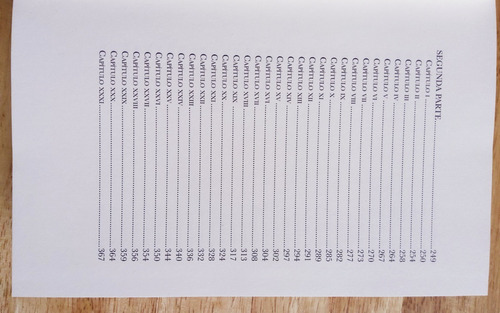 SEGUNDA PARTE........249
CAPÍTULO I........250
CAPÍTULO II........254
CAPÍTULO III........258
CAPÍTULO IV........264
CAPÍTULO V........267
CAPÍTULO VI........270
CAPÍTULO VII........273
CAPÍTULO VIII........277
CAPÍTULO IX........282
CAPÍTULO X........285
CAPÍTULO XI........289
CAPÍTULO XII........291
CAPÍTULO XIII........294
CAPÍTULO XIV........297
CAPÍTULO XV........302
CAPÍTULO XVI........304
CAPÍTULO XVII........308
CAPÍTULO XVIII........313
CAPÍTULO XIX........317
CAPÍTULO XX........324
CAPÍTULO XXI........328
CAPÍTULO XXII........332
CAPÍTULO XXIII........336
CAPÍTULO XXIV........340
CAPÍTULO XXV........344
CAPÍTULO XXVI........350
CAPÍTULO XXVII........354
CAPÍTULO XXVIII........356
CAPÍTULO XXIX........359
CAPÍTULO XXX........364
CAPÍTULO XXXI........367